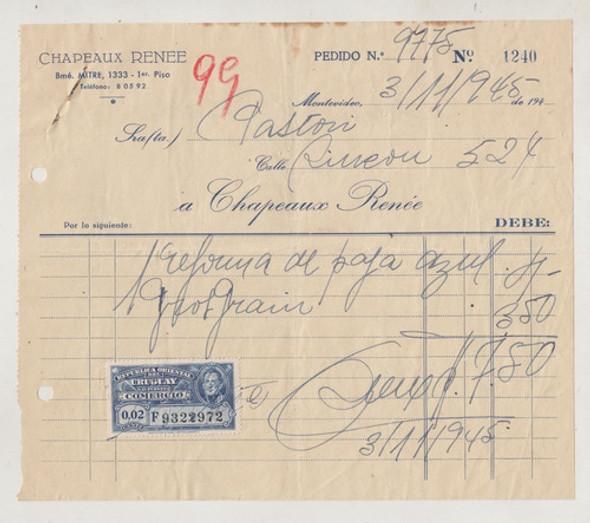 CHAPEAUX RENEE
Bmé. MITRE, 1333 - 1er. Piso
Teléfono: 8 05 92
99
PEDIDO N.° 9775 No. 1240
Montevideo, 3/11/945 de 194
Sra/ta.) Pastori
Calle Rincon 524
a Chapeaux Renée
Por lo siguiente: DEBE:
1 reforma de paja azul
1 Grosgrain 3.50
7.50
3/11/945
REPUBLICA ORIENTAL
DEL
URUGUAY
COMERCIO
0,02 F 9322972